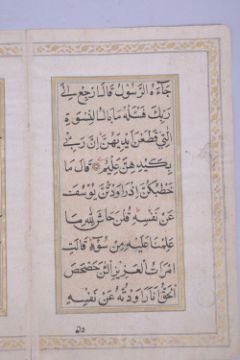 جَآءَهُ الرَّسُولُ قَالَ ارْجِعْ إِلَى
رَبِّكَ فَسْئَلْهُ مَا بَالُ النِّسْوَةِ
الّٰتِي قَطَّعْنَ أَيْدِيَهُنَّ إِنَّ رَبِّي
بِكَيْدِهِنَّ عَلِيمٌ قَالَ مَا
خَطْبُكُنَّ إِذْ رَاوَدْتُنَّ يُوسُفَ
عَنْ نَفْسِهِ قُلْنَ حَاشَ لِلّٰهِ مَا
عَلِمْنَا عَلَيْهِ مِنْ سُوٓءٍ قَالَتِ
امْرَأَتُ الْعَزِيزِ الْئٰنَ حَصْحَصَ
الْحَقُّ أَنَا رَاوَدْتُهُ عَنْ نَفْسِهِ